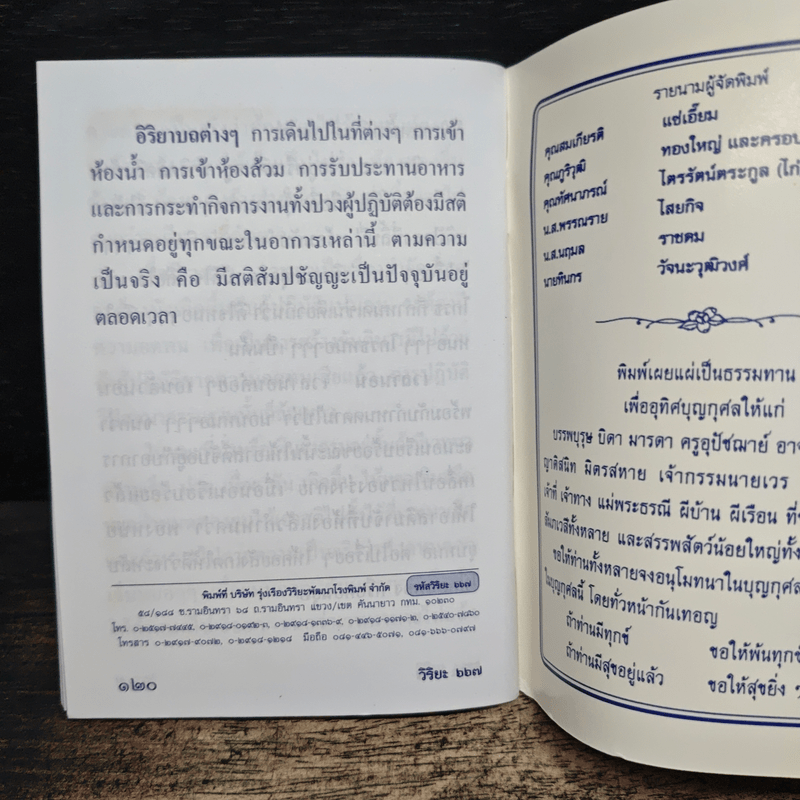 อิริยาบถต่างๆ การเดินไปในที่ต่างๆ การเข้า
ห้องน้ำ การเข้าห้องส้วม การรับประทานอาหาร
และการกระทำกิจการงานทั้งปวงผู้ปฏิบัติต้องมีสติ
กำหนดอยู่ทุกขณะในอาการเหล่านี้ ตามความ
เป็นจริง คือ มีสติสัมปชัญญะเป็นปัจจุบันอยู่
ตลอดเวลา
พิมพ์ที่ บริษัท รุ่งเรืองวิริยะพัฒนาโรงพิมพ์ จำกัด รหัสวิริยะ ๖๖๗
๕๘/๑๘๘ ซ.รามอินทรา ๖๘ ถ.รามอินทรา แขวง/เขต คันนายาว กทม. ๑๐๒๓๐
โทร. ๐-๒๕๑๗-๗๔๔๕, ๐-๒๙๑๘-๐๑๙๒-๓, ๐-๒๙๑๘-๑๓๓๖-๙, ๐-๒๙๑๘-๑๑๗๑-๒, ๐-๒๕๔๐-๗๘๖๐
โทรสาร ๐-๒๙๑๗-๙๐๗๒, ๐-๒๙๑๘-๑๒๑๘ มือถือ ๐๘๑-๔๔๖-๕๐๗๑, ๐๘๑-๖๖๖-๐๗๙๗
๑๒๐ วิริยะ ๖๖๗
รายนามผู้จัดพิมพ์
คุณสมเกียรติ แซ่เอี๊ยม
คุณภูริวุฒิ ทองใหญ่ และครอบ
คุณทัศนาภรณ์ ไตรรัตน์ตระกูล (ไก่
น.ส.พรรณราย ไสยกิจ
น.ส.นฤมล ราชคม
นายทินกร วัจนะวุฒิวงศ์
พิมพ์เผยแผ่เป็นธรรมทาน
เพื่ออุทิศบุญกุศลให้แก่
บรรพบุรุษ บิดา มารดา ครูอุปัชฌาย์ อาจ
ญาติสนิท มิตรสหาย เจ้ากรรมนายเวร
เจ้าที่ เจ้าทาง แม่พระธรณี ผีบ้าน ผีเรือน ที่
สัมภเวสีทั้งหลาย และสรรพสัตว์น้อยใหญ่ทั้ง
ขอให้ท่านทั้งหลายจงอนุโมทนาในบุญกุศล
ในบุญกุศลนี้ โดยทั่วหน้ากันเทอญ
ถ้าท่านมีทุกข์ ขอให้พ้นทุกข์
ถ้าท่านมีสุขอยู่แล้ว ขอให้สุขยิ่ง